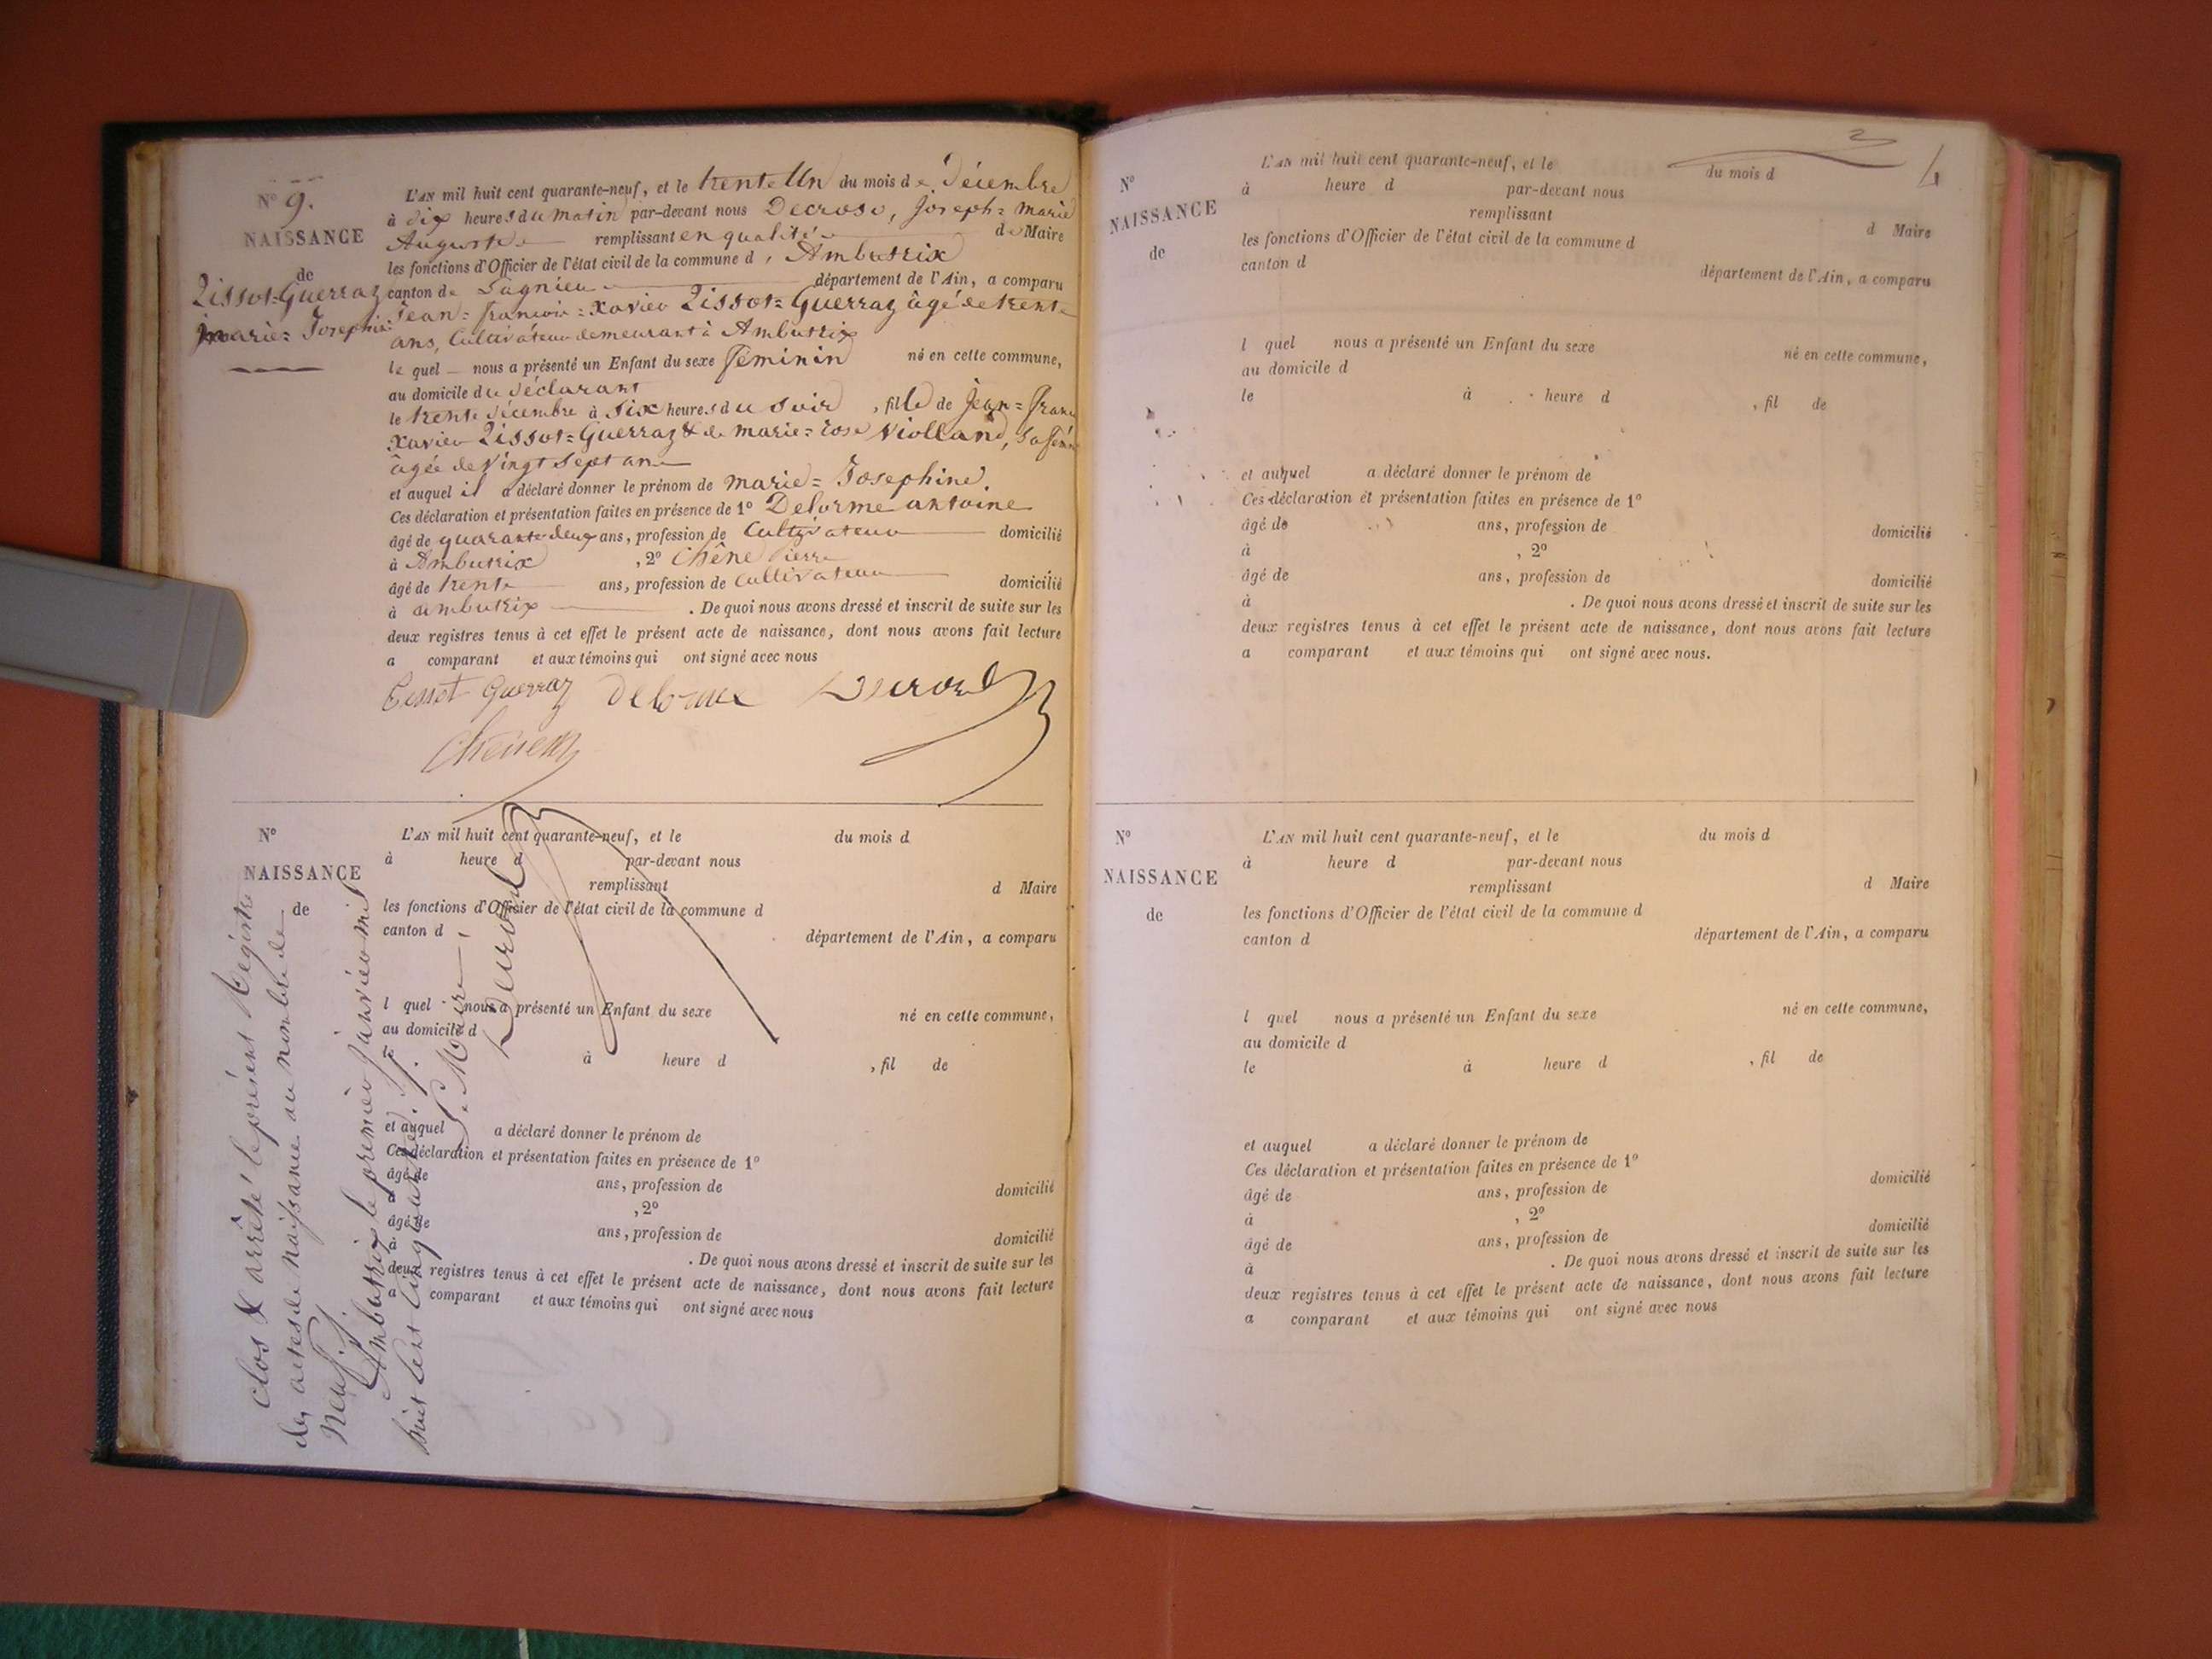 N° 9.
NAISSANCE
de
Tissot-Guerraz
marie= Josephine
L'AN mil huit cent quarante-neuf, et le trente Un du mois de Décembre
à dix heures du matin par-devant nous Decroso, Joseph= marie
Auguste remplissant en qualité de Maire
les fonctions d'Officier de l'état civil de la commune d'Ambutrix
canton de Lagnieu département de l'Ain, a comparu
Jean= françois= Xavier Tissot= Guerraz âgé de trente
ans, Cultivateur demeurant à Ambutrix
le quel nous a présenté un Enfant du sexe féminin né en cette commune,
au domicile du déclarant
le trente décembre à Six heures du soir, fille de Jean= franç
Xavier Tissot= Guerraz & de marie= rose Violland, sa fem
âgée de Vingt sept ans
et auquel il a déclaré donner le prénom de marie= Josephine.
Ces déclaration et présentation faites en présence de 1° Delorme antoine
âgé de quarante deux ans, profession de Cultivateur domicilié
à Ambutrix, 2° Chêne Pierre
âgé de trente ans, profession de Cultivateur domicilié
à ambutrix. De quoi nous avons dressé et inscrit de suite sur les
deux registres tenus à cet effet le présent acte de naissance, dont nous avons fait lecture
a comparant et aux témoins qui ont signé avec nous
Tissot Guerraz Delorme
N°
NAISSANCE
de
L'AN mil huit cent quarante-neuf, et le du mois d
à heure d par-devant nous
remplissant d Maire
les fonctions d'Officier de l'état civil de la commune d
canton d département de l'Ain, a comparu
l quel nous a présenté un Enfant du sexe né en cette commune,
au domicile d
à heure d , fil de
et auquel a déclaré donner le prénom de
Ces déclaration et présentation faites en présence de 1°
âgé de ans, profession de domicilié
à , 2°
âgé de ans, profession de domicilié
à . De quoi nous avons dressé et inscrit de suite sur les
deux registres tenus à cet effet le présent acte de naissance, dont nous avons fait lecture
a comparant et aux témoins qui ont signé avec nous
Clos & arrêté le présent Régistre
des actes de naissance au nombre de
Neuf.
Ambutrix le premier janvier mil
huit cent cinquante.
Le Maire
4
N°
NAISSANCE
de
L'AN mil huit cent quarante-neuf, et le du mois d
à heure d par-devant nous
remplissant d Maire
les fonctions d'Officier de l'état civil de la commune d
canton d département de l'Ain, a comparu
l quel nous a présenté un Enfant du sexe né en cette commune,
au domicile d
le à heure d , fil de
et auquel a déclaré donner le prénom de
Ces déclaration et présentation faites en présence de 1°
âgé de ans, profession de domicilié
à , 2°
âgé de ans, profession de domicilié
à . De quoi nous avons dressé et inscrit de suite sur les
deux registres tenus à cet effet le présent acte de naissance, dont nous avons fait lecture
a comparant et aux témoins qui ont signé avec nous.
N°
NAISSANCE
de
L'AN mil huit cent quarante-neuf, et le du mois d
à heure d par-devant nous
remplissant d Maire
les fonctions d'Officier de l'état civil de la commune d
canton d département de l'Ain, a comparu
l quel nous a présenté un Enfant du sexe né en cette commune,
au domicile d
le à heure d , fil de
et auquel a déclaré donner le prénom de
Ces déclaration et présentation faites en présence de 1°
âgé de ans, profession de domicilié
à , 2°
âgé de ans, profession de domicilié
à . De quoi nous avons dressé et inscrit de suite sur les
deux registres tenus à cet effet le présent acte de naissance, dont nous avons fait lecture
a comparant et aux témoins qui ont signé avec nous